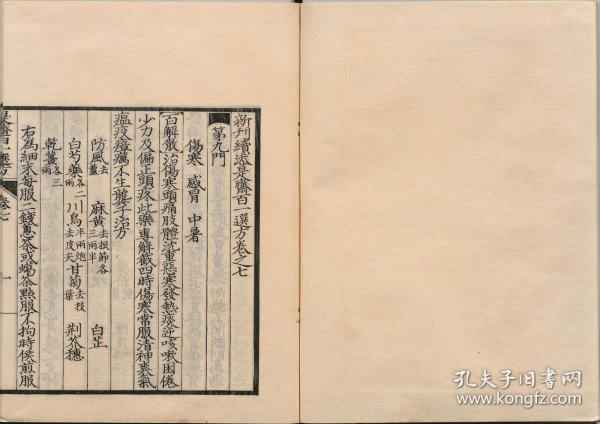 新刊續添是齋百一選方卷之七
第九門
傷寒 感冒 中暑
百解散治傷寒頭痛肢體沈重惡寒發熱痰逆咳嗽困倦
少力及偏正頭疼此藥專解截四時傷寒常服清神爽氣
瘟疫瘴癘不生龔子治方
防風去蘆 麻黃去根節各三兩半 白芷
白芍藥各二兩 川烏半兩炮去皮尖 甘菊去枝葉 荆芥穗
乾薑各三兩
右為細末每服二錢蔥茶或蠟茶點服不拘時候煎服
卷七
孔夫子旧书网
www.kongfz.com